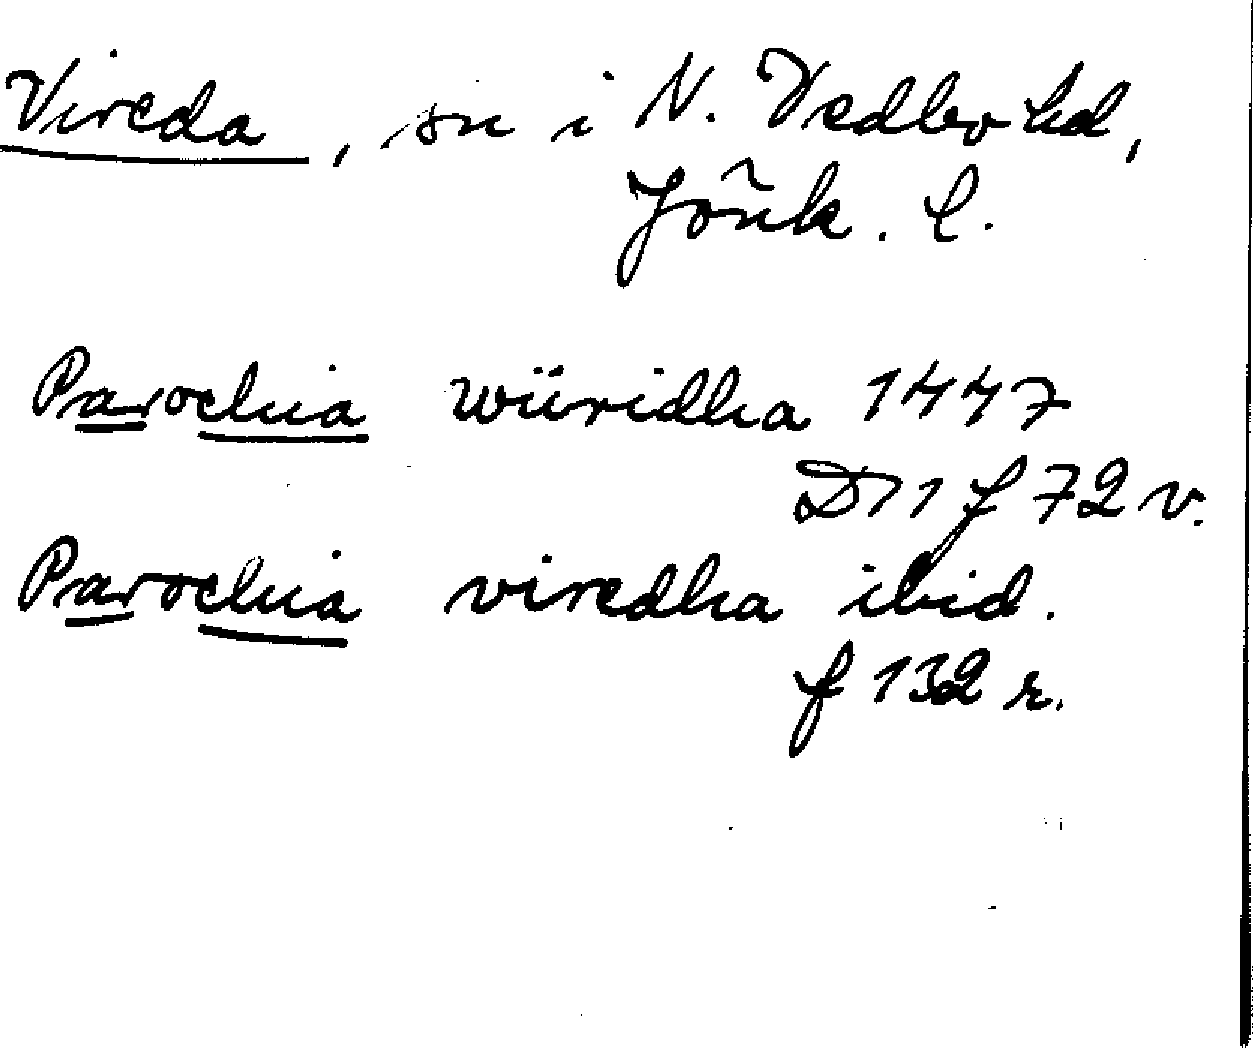 Vireda, sn i N. Vedbo hd,
Jönk. l.
Parochia wiiridha 1447
D 11 f 72 v.
Parochia viredha ibid.
f 132 r.